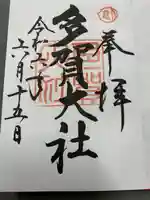 奉拝
多賀大社
令和六年
六月十五日